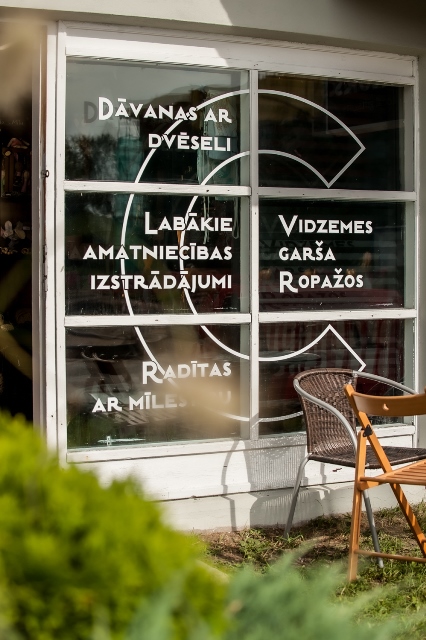 Dāvanas ar
dvēseli
Labākie
amatniecības
izstrādājumi
Vidzemes
garša
Ropažos
Radītas
ar